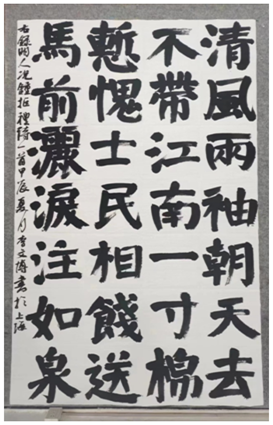 清風兩袖朝天去
不帶江南一寸棉
慙愧士民相餞送
馬前灑淚注如泉
右錄明人况鐘拒禮詩一首甲辰夏月李文博書於上海